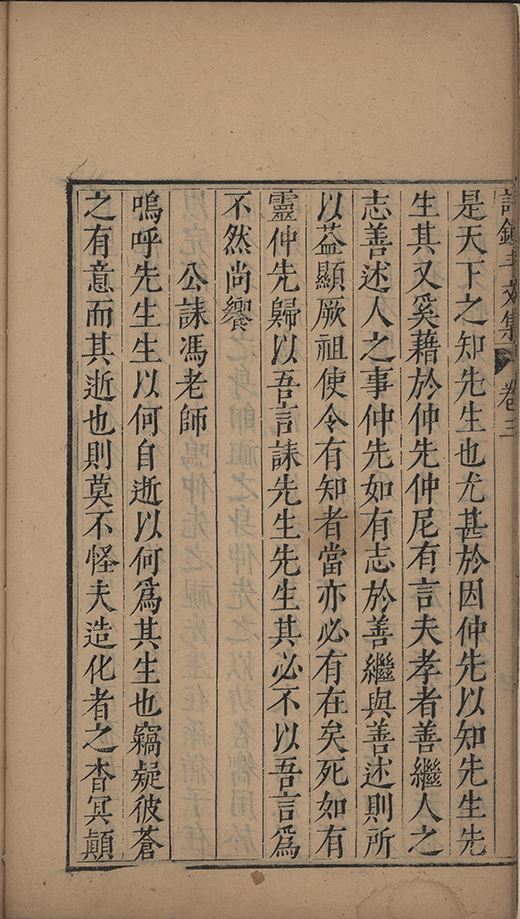 文集 卷三
是天下之知先生也尤甚於因仲先以知先生先
生其又奚藉於仲先仲尼有言夫孝者善繼人之
志善述人之事仲先如有志於善繼與善述則所
以葢顯厥祖使令有知者當亦必有在矣死如有
靈仲先歸以吾言誄先生先生其必不以吾言爲
不然尚饗
公誄馮老師
嗚呼先生生以何自逝以何爲其生也竊疑彼蒼
之有意而其逝也則莫不怪夫造化者之杳冥顛